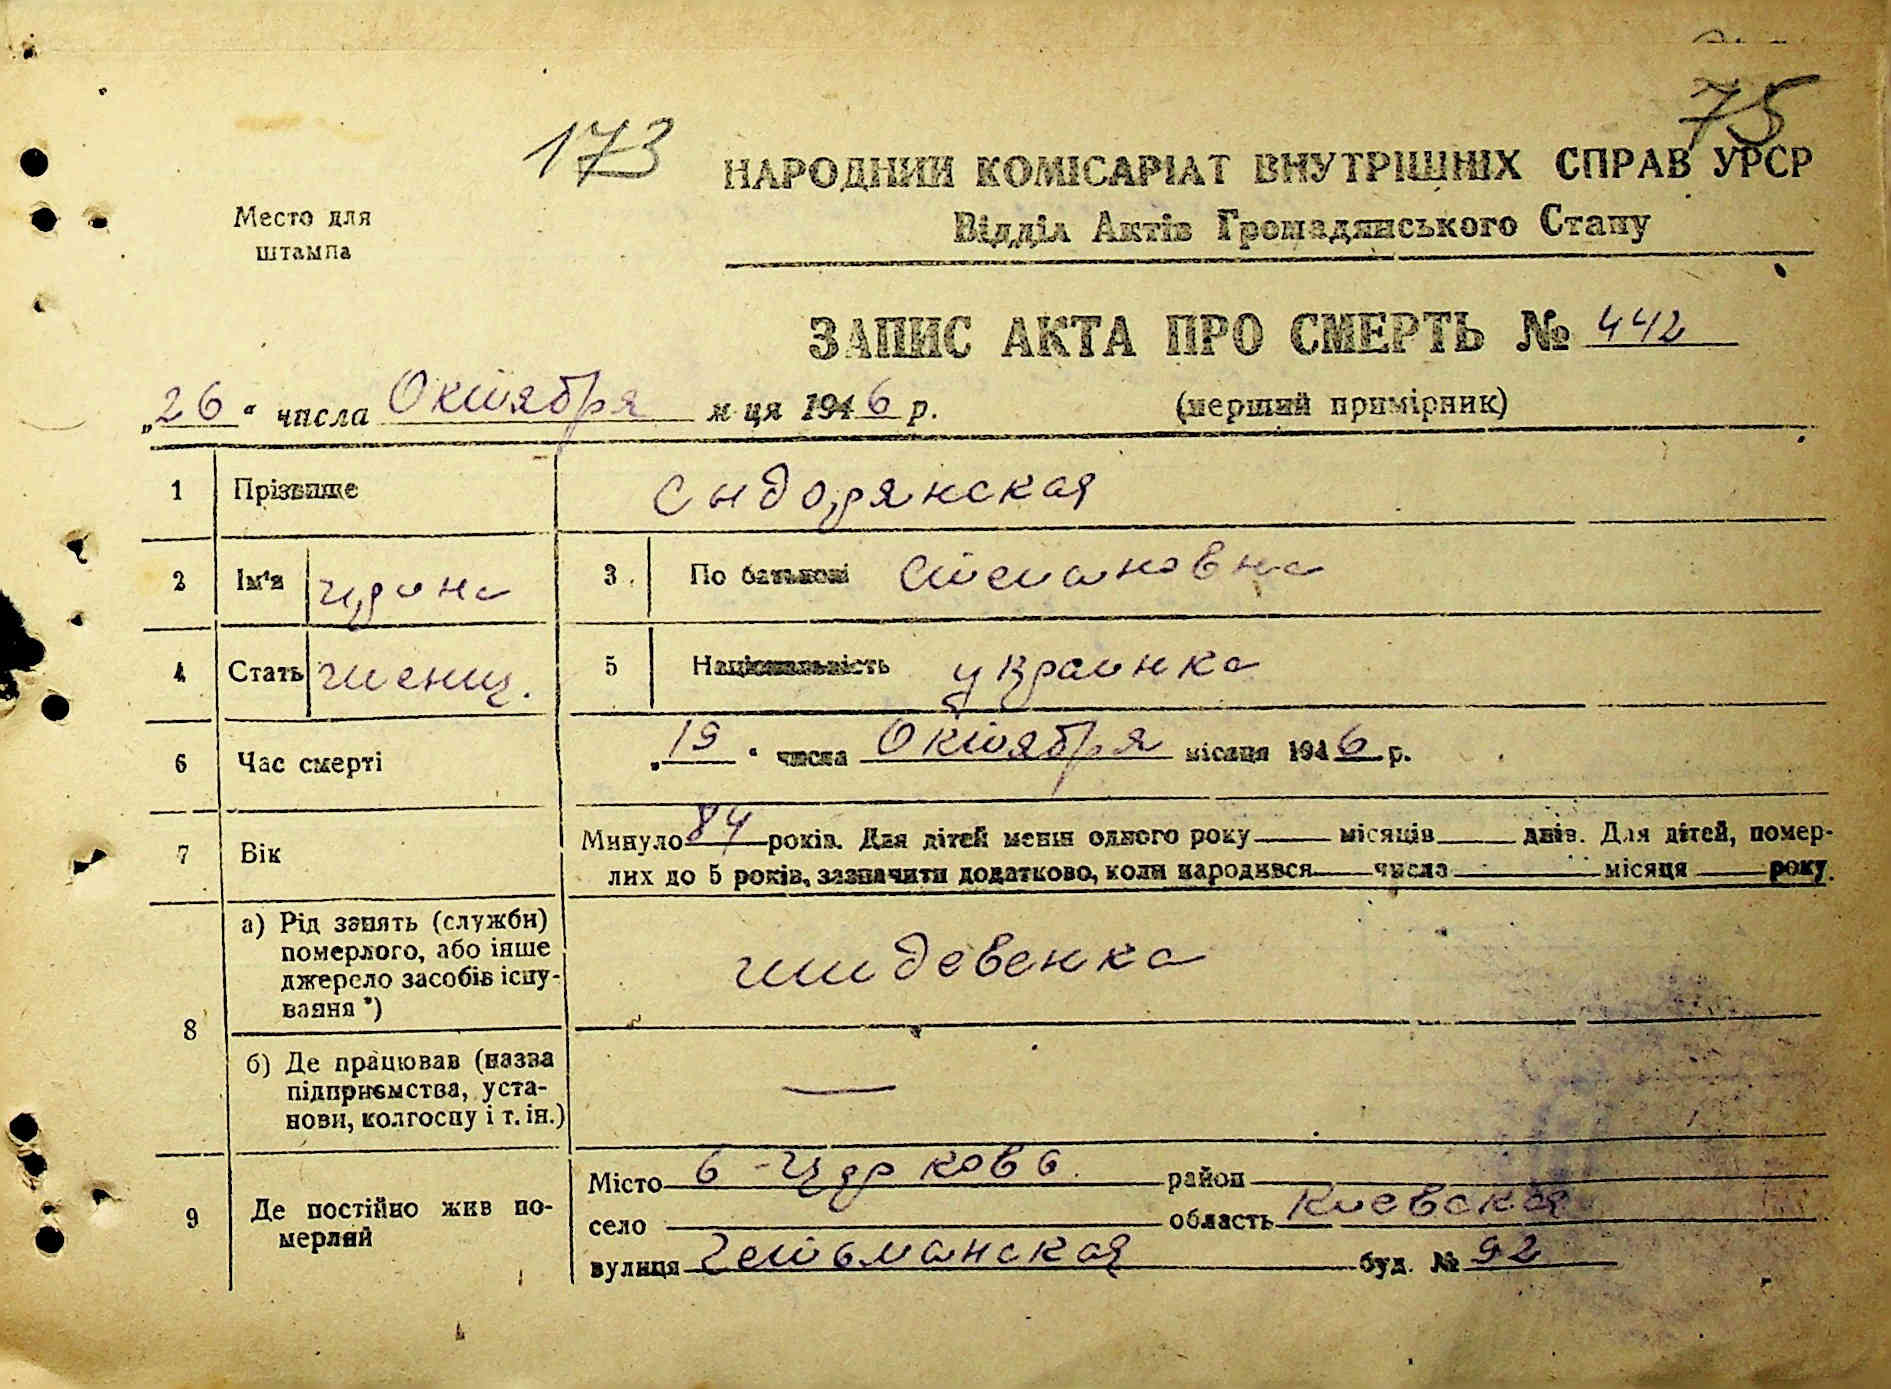 75
173
НАРОДНИЙ КОМІСАРІАТ ВНУТРІШНІХ СПРАВ УРСР
Место для
штампа
Відділ Актів Громадянського Стану
ЗАПИС АКТА ПРО СМЕРТЬ № 442
„26“ числа Октября м-ця 1946 р. (перший примірник)
1 Прізвище Сыдорянская
2 Ім'я Ирина 3 По батькові Степановна
4 Стать женщ. 5 Національність украинка
6 Час смерті „19“ числа Октября місяця 1946 р.
7 Вік Минуло 84 років. Для дітей менш одного року місяців днів. Для дітей, помер-
лих до 5 років, зазначити додатково, коли народився числа місяця року.
8 а) Рід занять (служби)
померлого, або інше
джерело засобів існу-
вання *) иждевенка
б) Де працював (назва
підприємства, уста-
нови, колгоспу і т. ін.) —
9 Де постійно жив по-
мерлий
Місто б-Церковь район
село область Киевская
вулиця Гетьманская буд. № 92